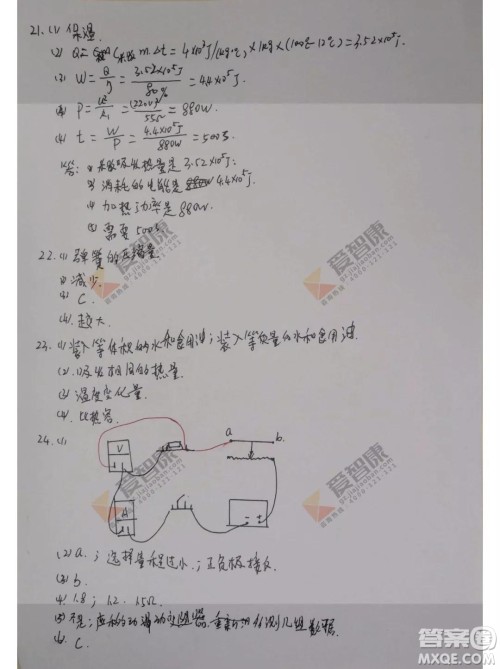 21. (1) 保温.
(2) Q= C米饭 m Δt = 4×10³J/(kg·℃) × 1kg × (100℃-12℃) = 3.52×10⁵J.
(3) W = Q/η = 3.52×10⁵J/80% = 4.4×10⁵J
P = U²/R₁ = (220V)²/55Ω = 880W
(4) t = W/P = 4.4×10⁵J/880W = 500s
答: 吸收热量是 3.52×10⁵J;
消耗的电能是 4.4×10⁵J.
加热功率是 880W.
需要 500s.
22. (1) 弹簧的压缩量
减少
C
(4) 越大
23. (1) 装入等体积的水和食用油; 装入等质量的水和食用油.
(2) 吸收相同的热量.
(3) 温度变化量
(4) 比热容
24. (1)
V a b
A
- +
(2) a; 选择量程过小; 正负极接反
(3) b
(4) 1.8; 1.2 1.5Ω
(5) 不是; 应移动滑动变阻器 测几组数据.
(6) C
爱智康
4000-121-121
答案圈
MXQE.COM